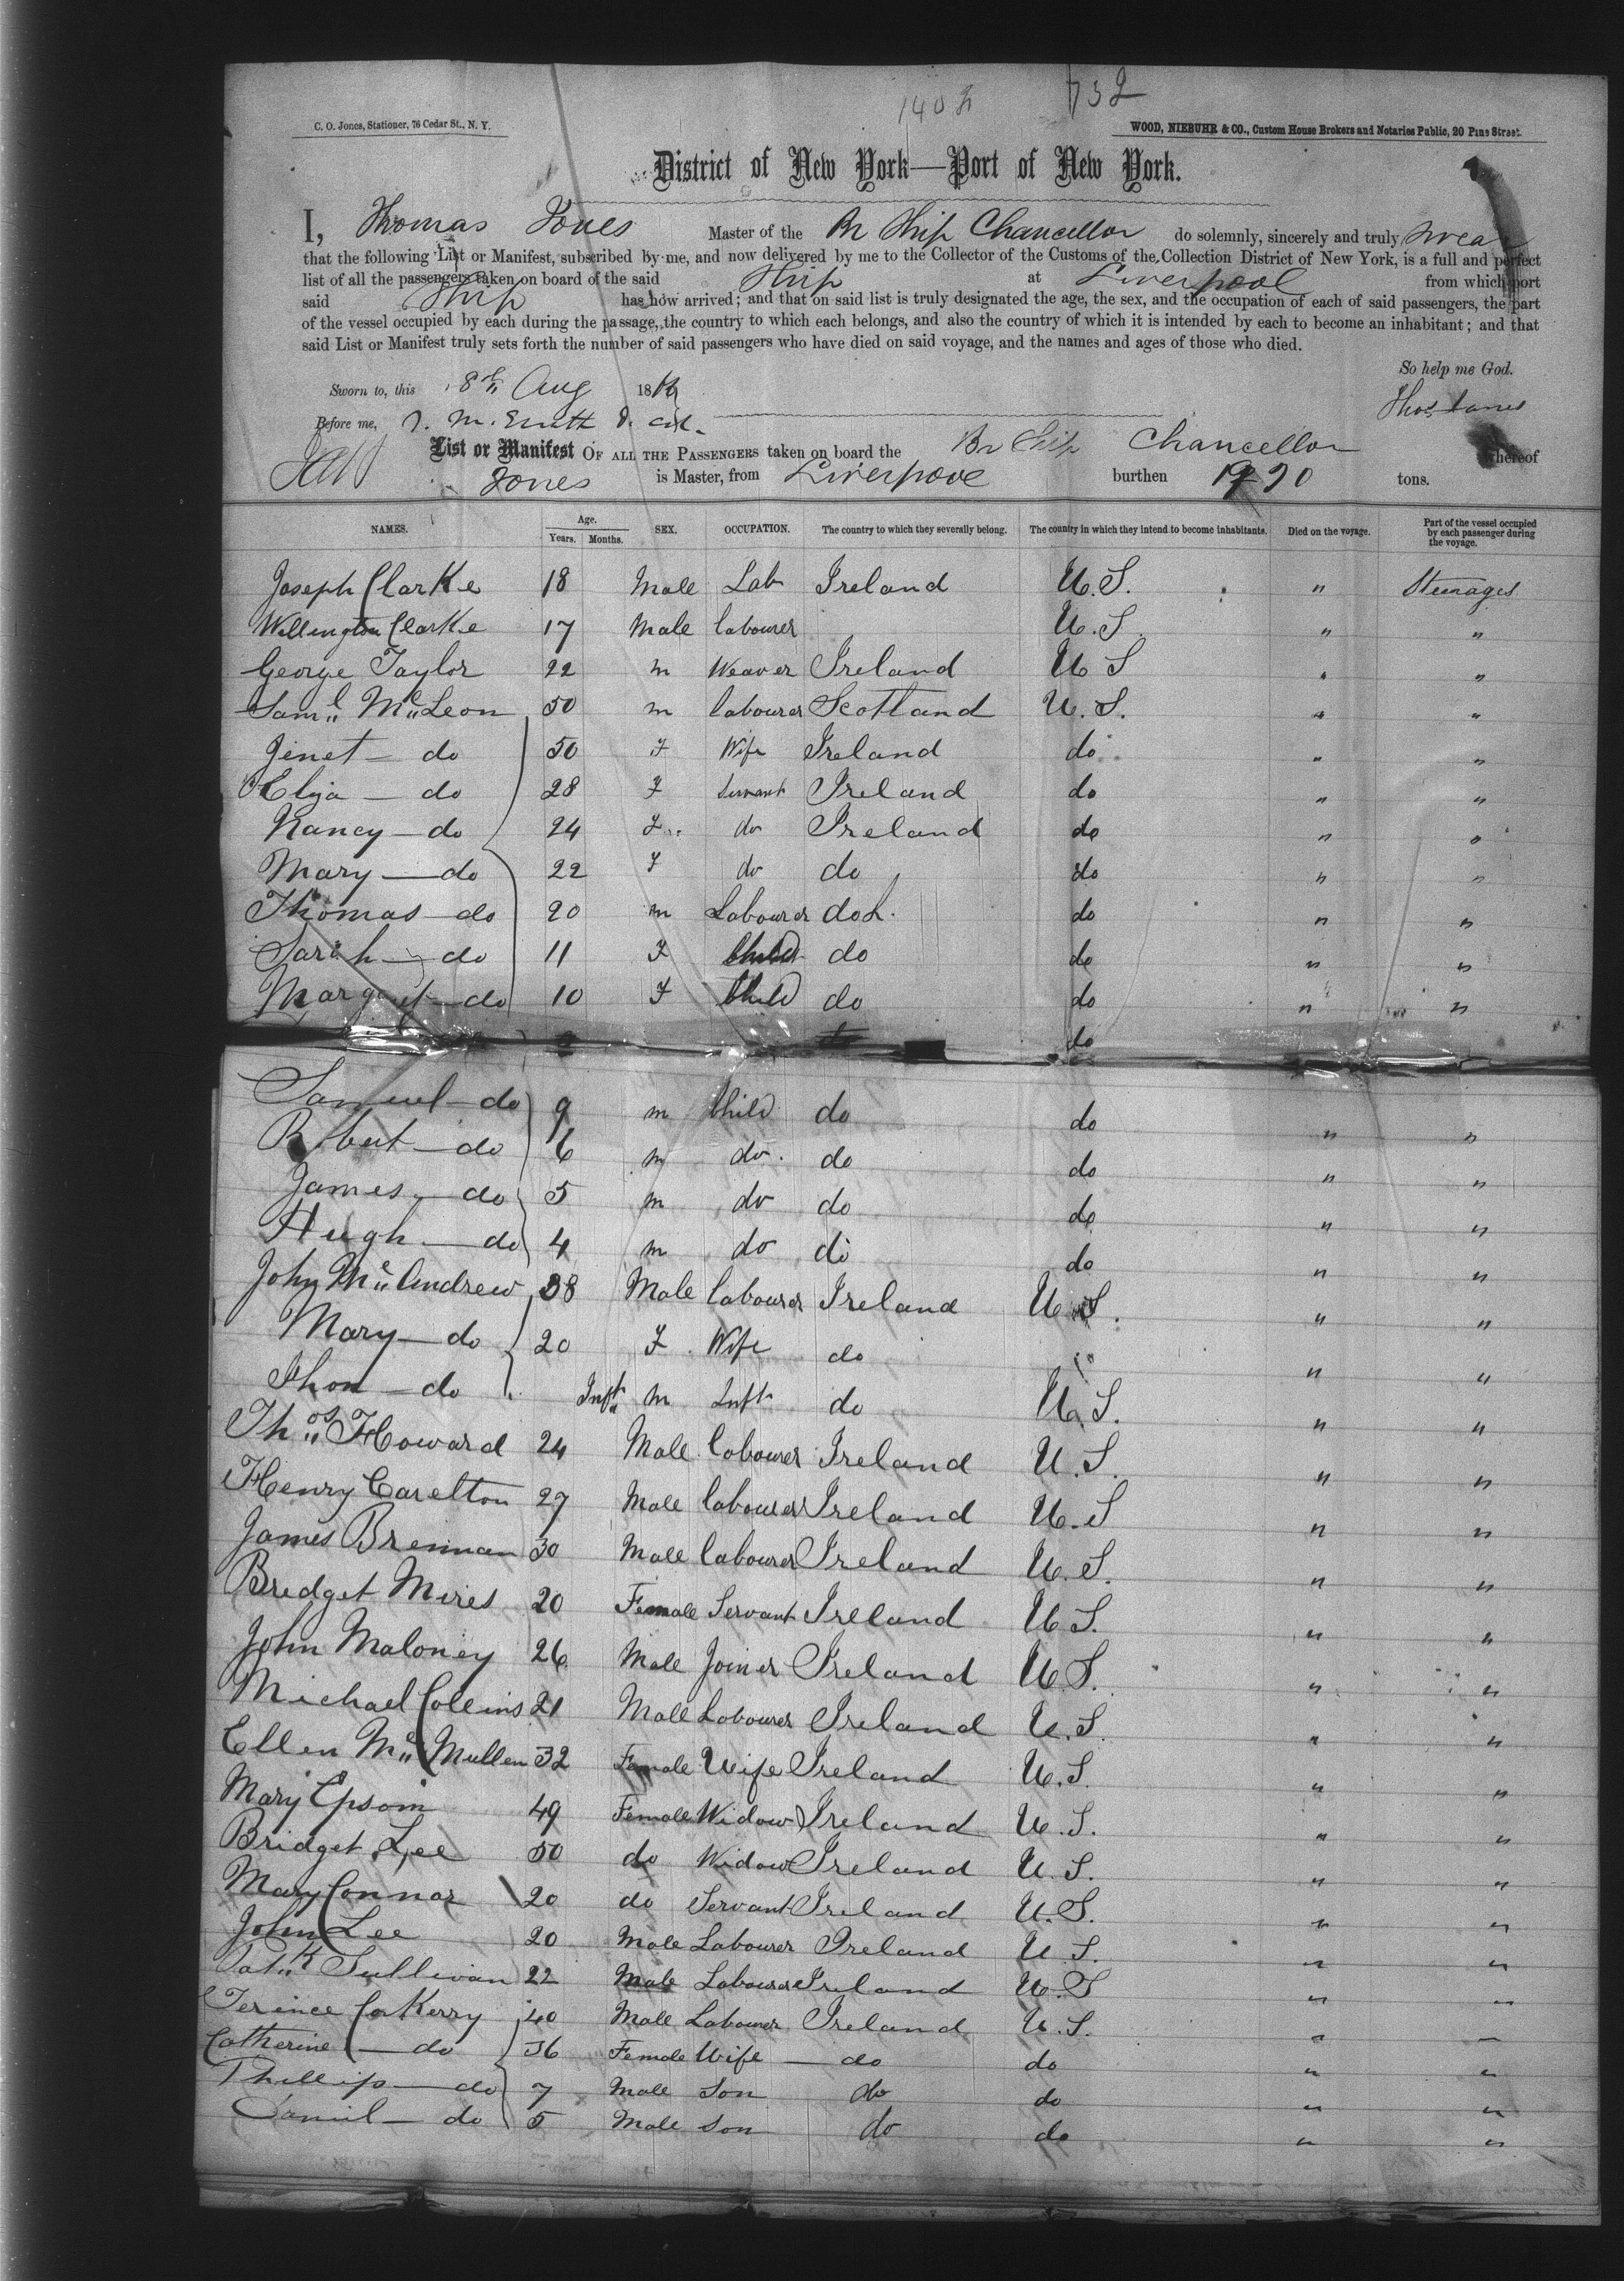 732
C. O. Jones, Stationer, 76 Cedar St., N. Y.
WOOD, NIEBUHR & CO., Custom House Brokers and Notaries Public, 20 Pine Street.
District of New York—Port of New York.
I, Thomas Jones Master of the Br Ship Chancellor do solemnly, sincerely and truly swear
that the following List or Manifest, subscribed by me, and now delivered by me to the Collector of the Customs of the Collection District of New York, is a full and perfect
list of all the passengers taken on board of the said Ship at Liverpool from which port
said Ship has now arrived; and that on said list is truly designated the age, the sex, and the occupation of each of said passengers, the part
of the vessel occupied by each during the passage, the country to which each belongs, and also the country of which it is intended by each to become an inhabitant; and that
said List or Manifest truly sets forth the number of said passengers who have died on said voyage, and the names and ages of those who died.
So help me God.
Sworn to, this 8th Aug 18
Thos Jones
Before me,
List or Manifest OF ALL THE PASSENGERS taken on board the Br Ship Chancellor whereof
Jones is Master, from Liverpool burthen tons.
NAMES. Age. Years. Months. SEX. OCCUPATION. The country to which they severally belong. The country in which they intend to become inhabitants. Died on the voyage. Part of the vessel occupied by each passenger during the voyage.
Joseph Clarke 18 Male Lab Ireland U.S. " Steerage
Wellington Clarke 17 Male labourer U.S. " "
George Taylor 22 m Weaver Ireland U S " "
Saml McLeon 50 m labourer Scotland U.S. " "
Jenet — do 50 F Wife Ireland do " "
Eliza — do 28 F Servant Ireland do " "
Nancy — do 24 F do Ireland do " "
Mary — do 22 F do do do " "
Thomas — do 20 m Labourer do do " "
Sarah — do 11 F Child do do " "
Marget — do 10 F Child do do " "
do
Samuel — do 9 m Child do do " "
Robert — do 6 m do do do " "
James — do 5 m do do do " "
Hugh — do 4 m do do do " "
John McAndrew 38 Male labourer Ireland U.S. " "
Mary — do 20 F Wife do " "
Jhon — do Inft m Inft do U.S. " "
Thos Howard 24 Male labourer Ireland U.S. " "
Henry Carelton 27 Male labourer Ireland U.S " "
James Brennan 30 Male labourer Ireland U.S. " "
Bredget Mires 20 Female Servant Ireland U S. " "
John Maloney 26 Male Joiner Ireland U.S. " "
Michael Collins 21 Male Labourer Ireland U.S. " "
Ellen McMullen 32 Female Wife Ireland U.S. " "
Mary Epsom 49 Female Widow Ireland U.S. " "
Bridget Lee 50 do Widow Ireland U.S. " "
Mary Connor 20 do Servant Ireland U.S. " "
John Lee 20 Male Labourer Ireland U S. " "
Patk Sullivan 22 Male Labourer Ireland U.S " "
Terince CorKerry 40 Male Labourer Ireland U.S. " "
Catherine — do 36 Female Wife — do do " "
Phillip — do 7 Male Son do do " "
— do 5 Male Son do do " "